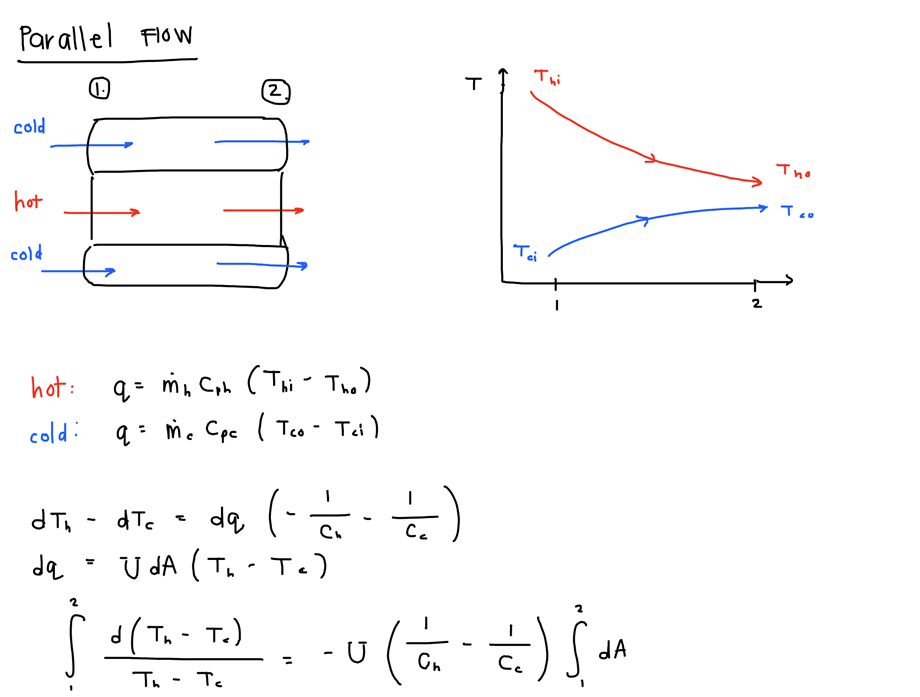 Parallel Flow
1. 2.
cold
hot
cold
T
Thi
Tho
Tco
Tci
1 2
hot: q = ṁh Cph (Thi - Tho)
cold: q = ṁc Cpc (Tco - Tci)
dTh - dTc = dq (- 1/Ch - 1/Cc)
dq = U dA (Th - Tc)
∫₁² d(Th - Tc)/(Th - Tc) = - U (1/Ch - 1/Cc) ∫₁² dA